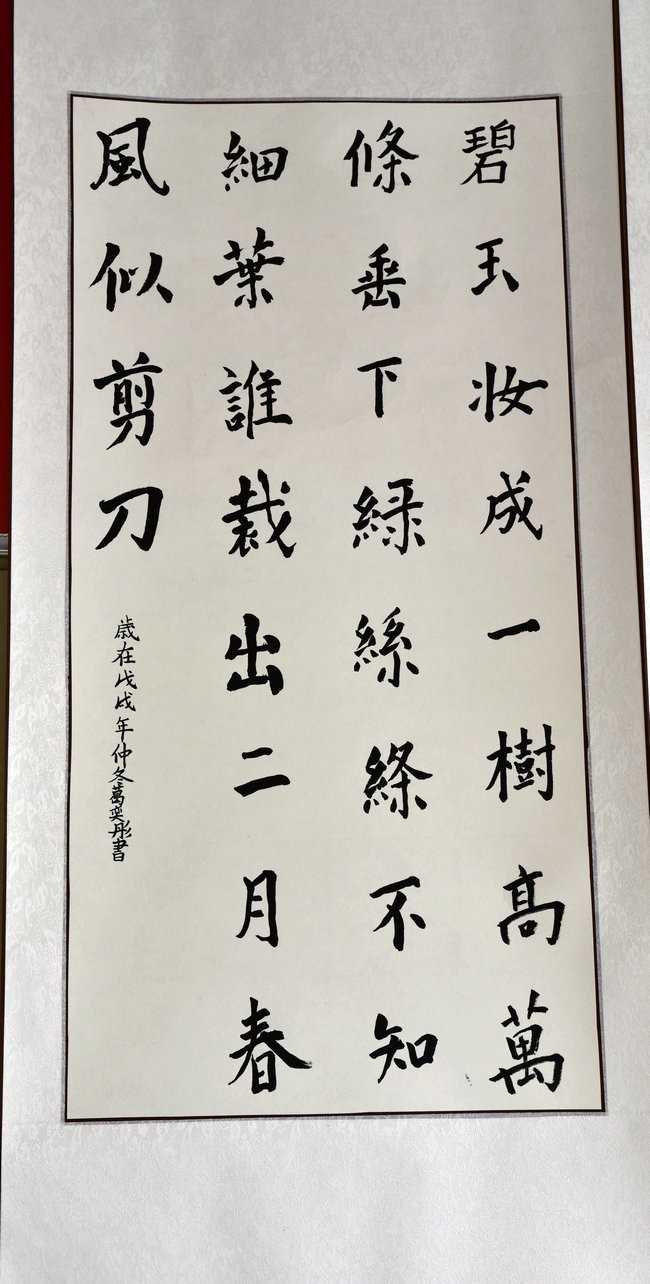 碧玉妝成一樹高萬
條垂下綠絲絛不知
細葉誰裁出二月春
風似剪刀
歲在戊戌年仲冬葛奕彤書